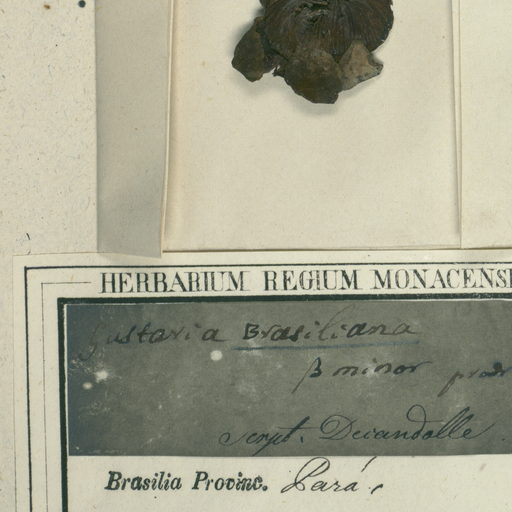 HERBARIUM REGIUM MONACENS
Gustavia Brasiliana
β minor prodr
script. Decandolle.
Brasilia Provinc. Pará.